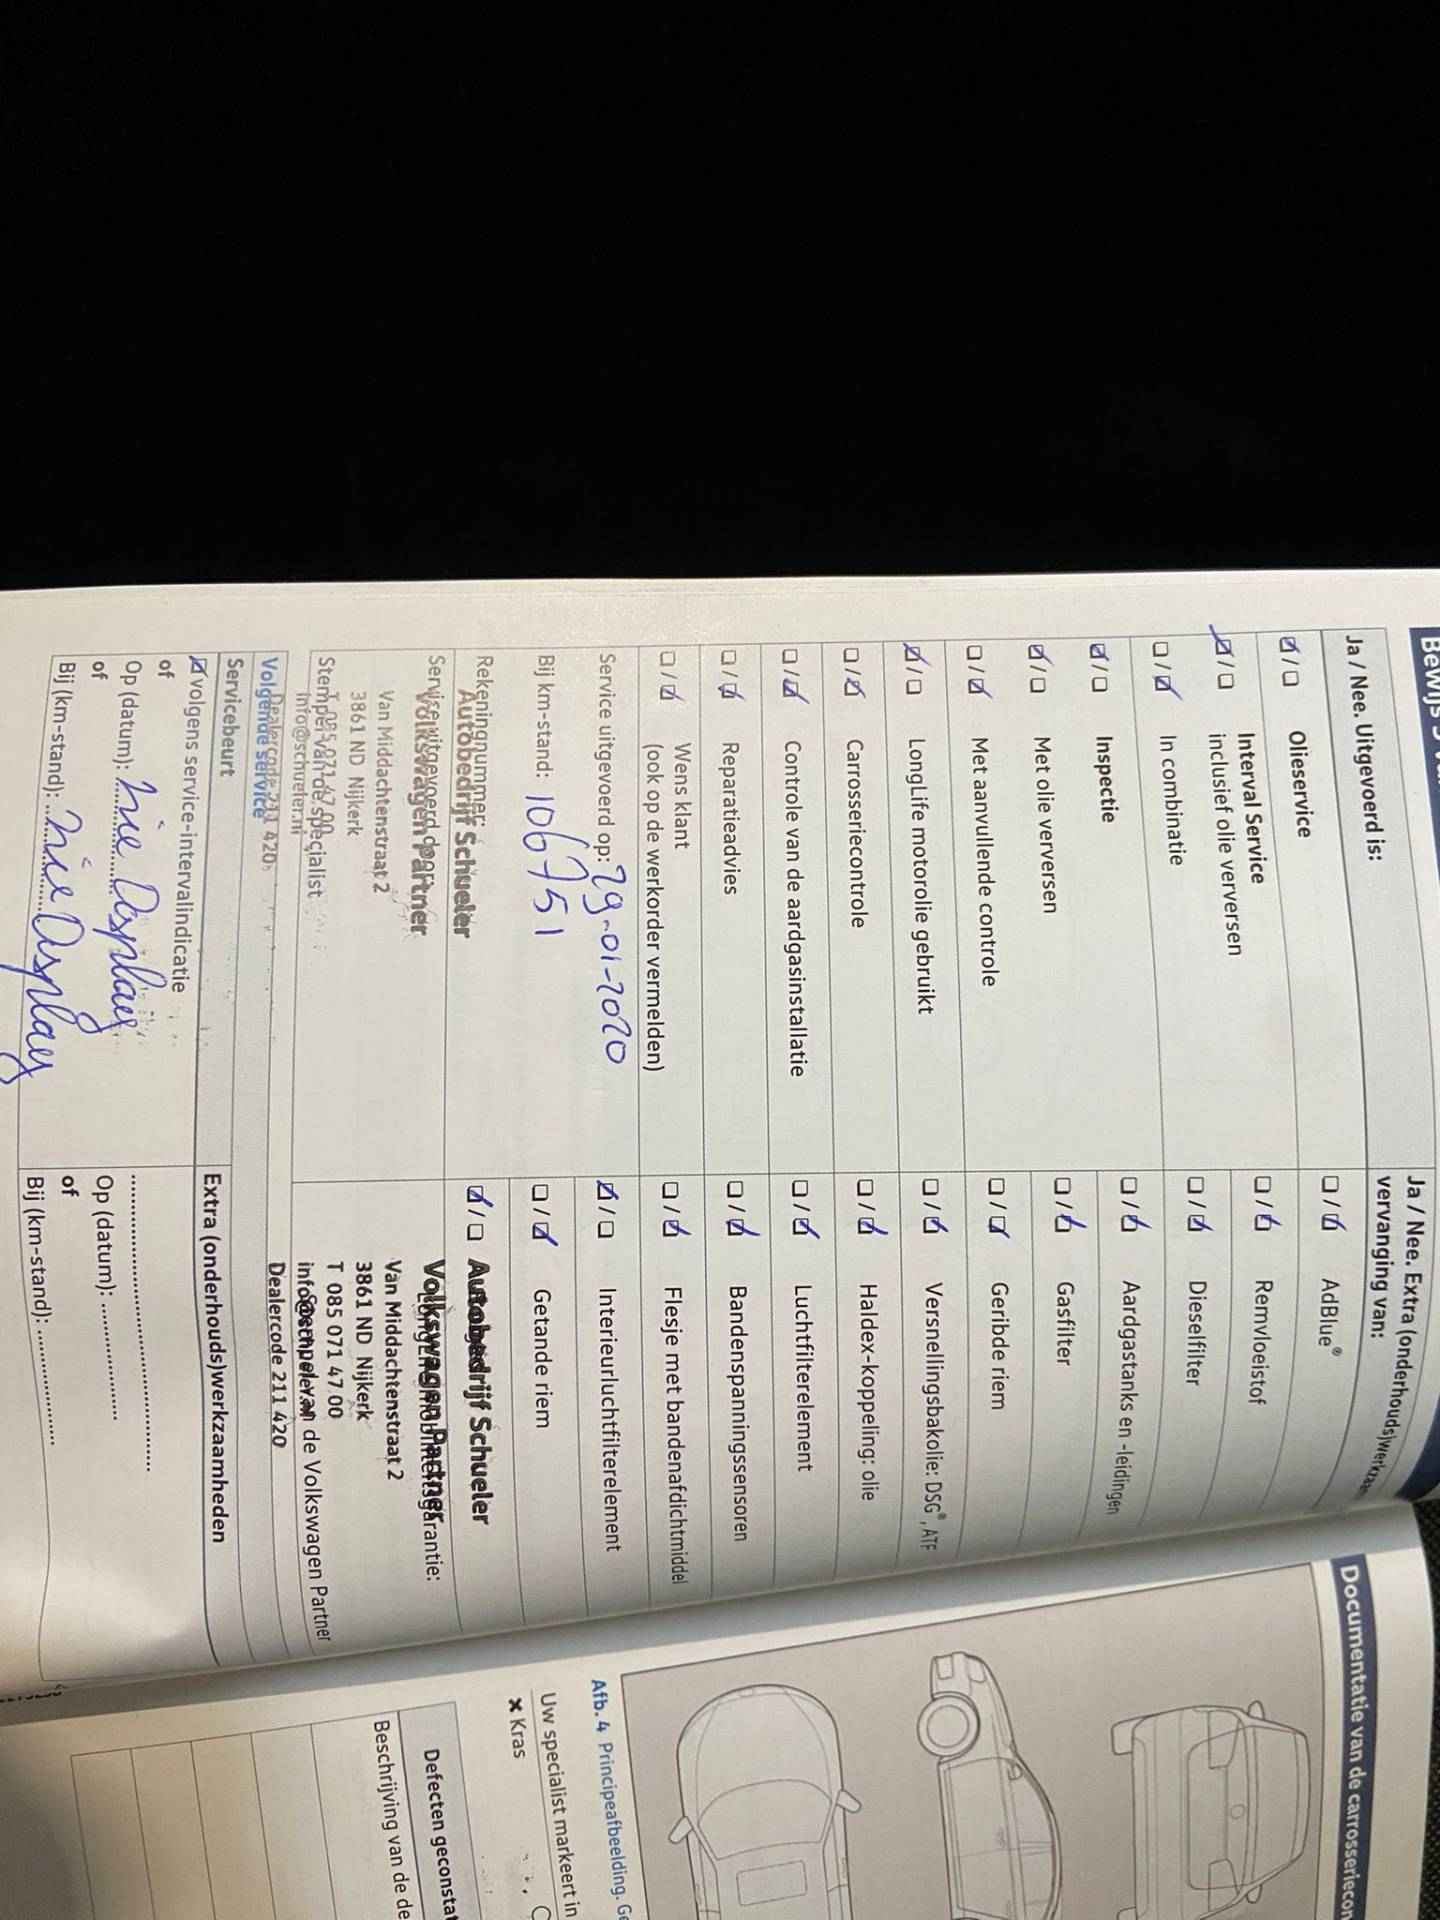 Bewijs
Ja / Nee. Uitgevoerd is:
☑/☐ Olieservice
☑/☐ Interval Service
inclusief olie verversen
☐/☑ In combinatie
☑/☐ Inspectie
☑/☐ Met olie verversen
☐/☑ Met aanvullende controle
☑/☐ LongLife motorolie gebruikt
☐/☑ Carrosseriecontrole
☐/☑ Controle van de aardgasinstallatie
☐/☑ Reparatieadvies
☐/☑ Wens klant
(ook op de werkorder vermelden)
Service uitgevoerd op: 29-01-2020
Bij km-stand: 106751
Rekeningnummer:
Autobedrijf Schueler
Service uitgevoerd door:
Volkswagen Partner
Van Middachtenstraat 2
3861 ND Nijkerk
T 085 071 47 00
Stempel van de specialist
info@schueler.nl
Dealercode 211 420
Ja / Nee. Extra (onderhouds)werkzaam
vervanging van:
☐/☑ AdBlue®
☐/☑ Remvloeistof
☐/☑ Dieselfilter
☐/☑ Aardgastanks en -leidingen
☐/☑ Gasfilter
☐/☑ Geribde riem
☐/☑ Versnellingsbakolie: DSG®, ATF
☐/☑ Haldex-koppeling: olie
☐/☑ Luchtfilterelement
☐/☑ Bandenspanningssensoren
☐/☑ Flesje met bandenafdichtmiddel
☑/☐ Interieurluchtfilterelement
☐/☑ Getande riem
☑/☐ Autobedrijf Schueler
Volkswagen Partner
garantie:
Van Middachtenstraat 2
3861 ND Nijkerk
T 085 071 47 00
Stempel van de Volkswagen Partner
Dealercode 211 420
Volgende service
Servicebeurt
☑ volgens service-intervalindicatie
of
Op (datum): zie Display
of
Bij (km-stand): zie Display
Extra (onderhouds)werkzaamheden
Op (datum):
of
Bij (km-stand):
Documentatie van de carrosseriecon
Afb. 4 Principeafbeelding. Ge
Uw specialist markeert in
✖ Kras
Defecten geconstat
Beschrijving van de de